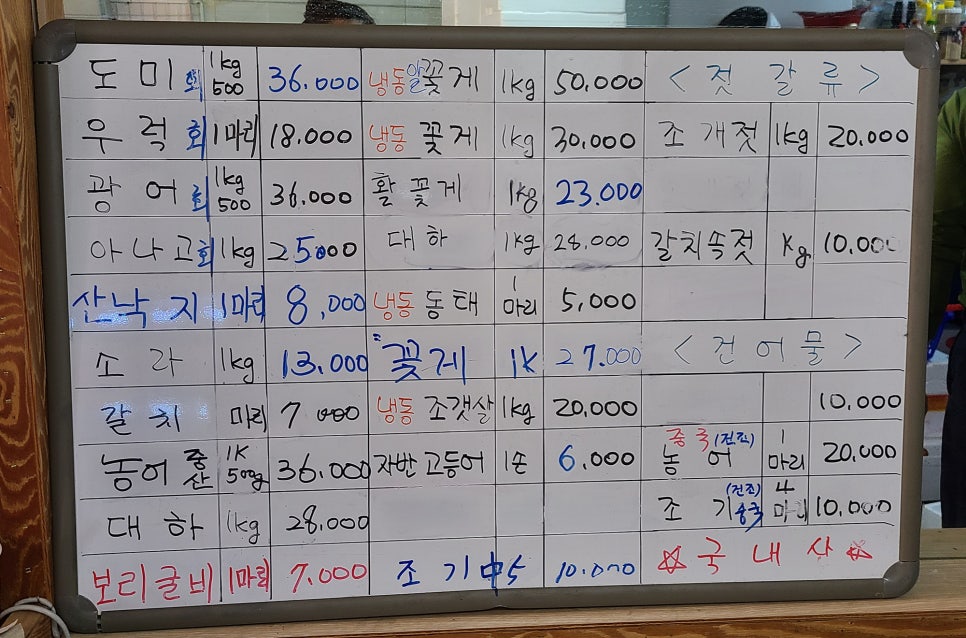 도미회 1kg 500 36.000 냉동알꽃게 1kg 50,000 <젓갈류>
우럭회 1마리 18.000 냉동 꽃게 1kg 30,000 조개젓 1kg 20,000
광어회 1kg 500 36.000 활꽃게 1kg 23.000
아나고회 1kg 25.000 대하 1kg 28.000 갈치속젓 kg 10.000
산낙지 1마리 8,000 냉동 동태 1마리 5,000
소라 1kg 13.000 꽃게 1k 27.000 <건어물>
갈치 마리 7.000 냉동 조갯살 1kg 20,000 10.000
농어 중산 1K 500g 36.000 자반고등어 1손 6.000 중국(건조) 농어 1마리 20,000
대하 1kg 28.000 조기 (건조) 중국 4마리 10,000
보리굴비 1마리 7.000 조기 中5 10.000 ☆국내산☆